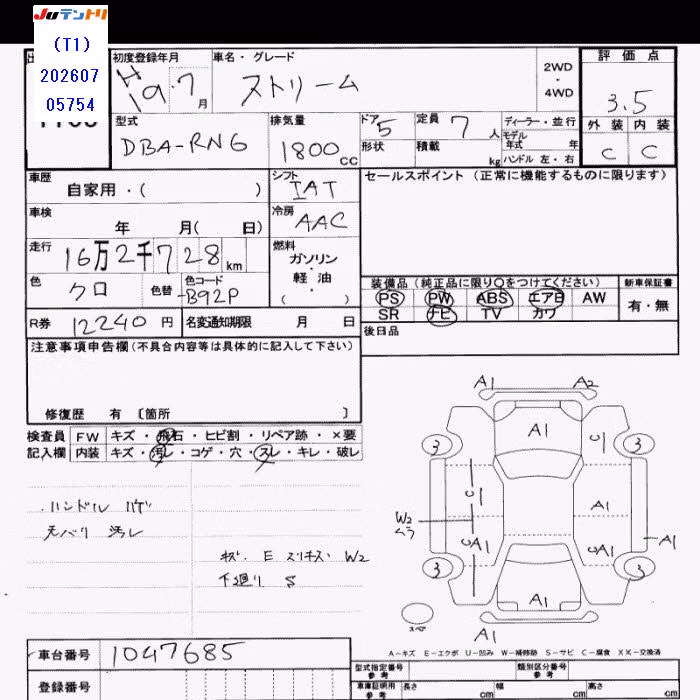 Juテントリ
(T1)
202607
05754
初度登録年月 車名・グレード
H19.7月 ストリーム
2WD
・
4WD
評価点
3.5
外装 内装
C C
型式 排気量 ドア 定員 ディーラー・並行
DBA-RN6 1800cc 5 7人
モデル
年式 年
形状 積載 kg ハンドル 左・右
車歴 シフト セールスポイント (正常に機能するものに限ります)
自家用・( ) IAT
車検 冷房
年 月( 日) AAC
走行 燃料
16万2千728km ガソリン
・
軽油
( )
色 色替 色コード
クロ B92P
装備品 (純正品に限り○をつけてください) 新車保証書
PS PW ABS エアB AW 有・無
SR ナビ TV カワ
R券 12240円 名変通知期限 月 日
後日品
注意事項申告欄(不具合内容等は具体的に記入して下さい)
修復歴 有 〔箇所 〕
検査員 FW キズ・飛石・ヒビ割・リペア跡・×要
記入欄 内装 キズ・汚レ・コゲ・穴・スレ・キレ・破レ
ハンドル ハゲ
天バリ 汚レ
キズ・E スリキズ W2
下廻り S
A1 A2
A1
3 3
U1
U1 A1
W2
ムラ
UA1 UA1 A1
3 3
A1
A1
スペア
A-キズ E-エクボ U-凹み W-補修跡 S-サビ C-腐食 XX-交換済
車台番号 1047685
登録番号
型式指定番号
参考
類別区分番号
参考
車庫証明用
参考
長さ cm 幅 cm 高さ cm